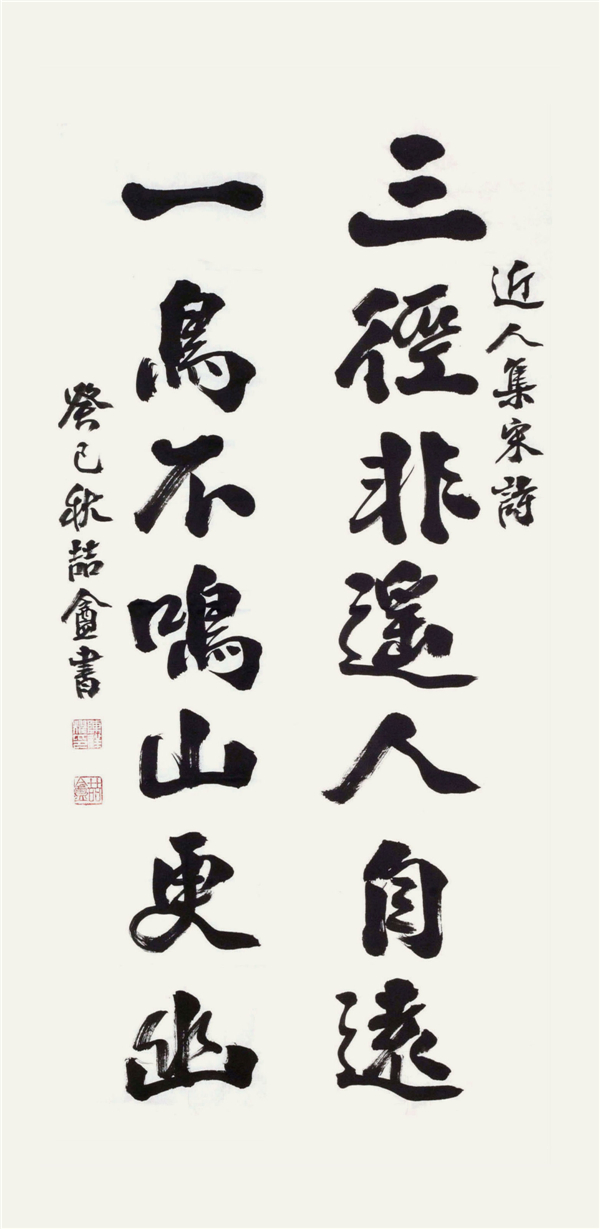 近人集宋詩
三徑非遥人自遠
一鳥不鳴山更幽
癸巳秋喆盦書